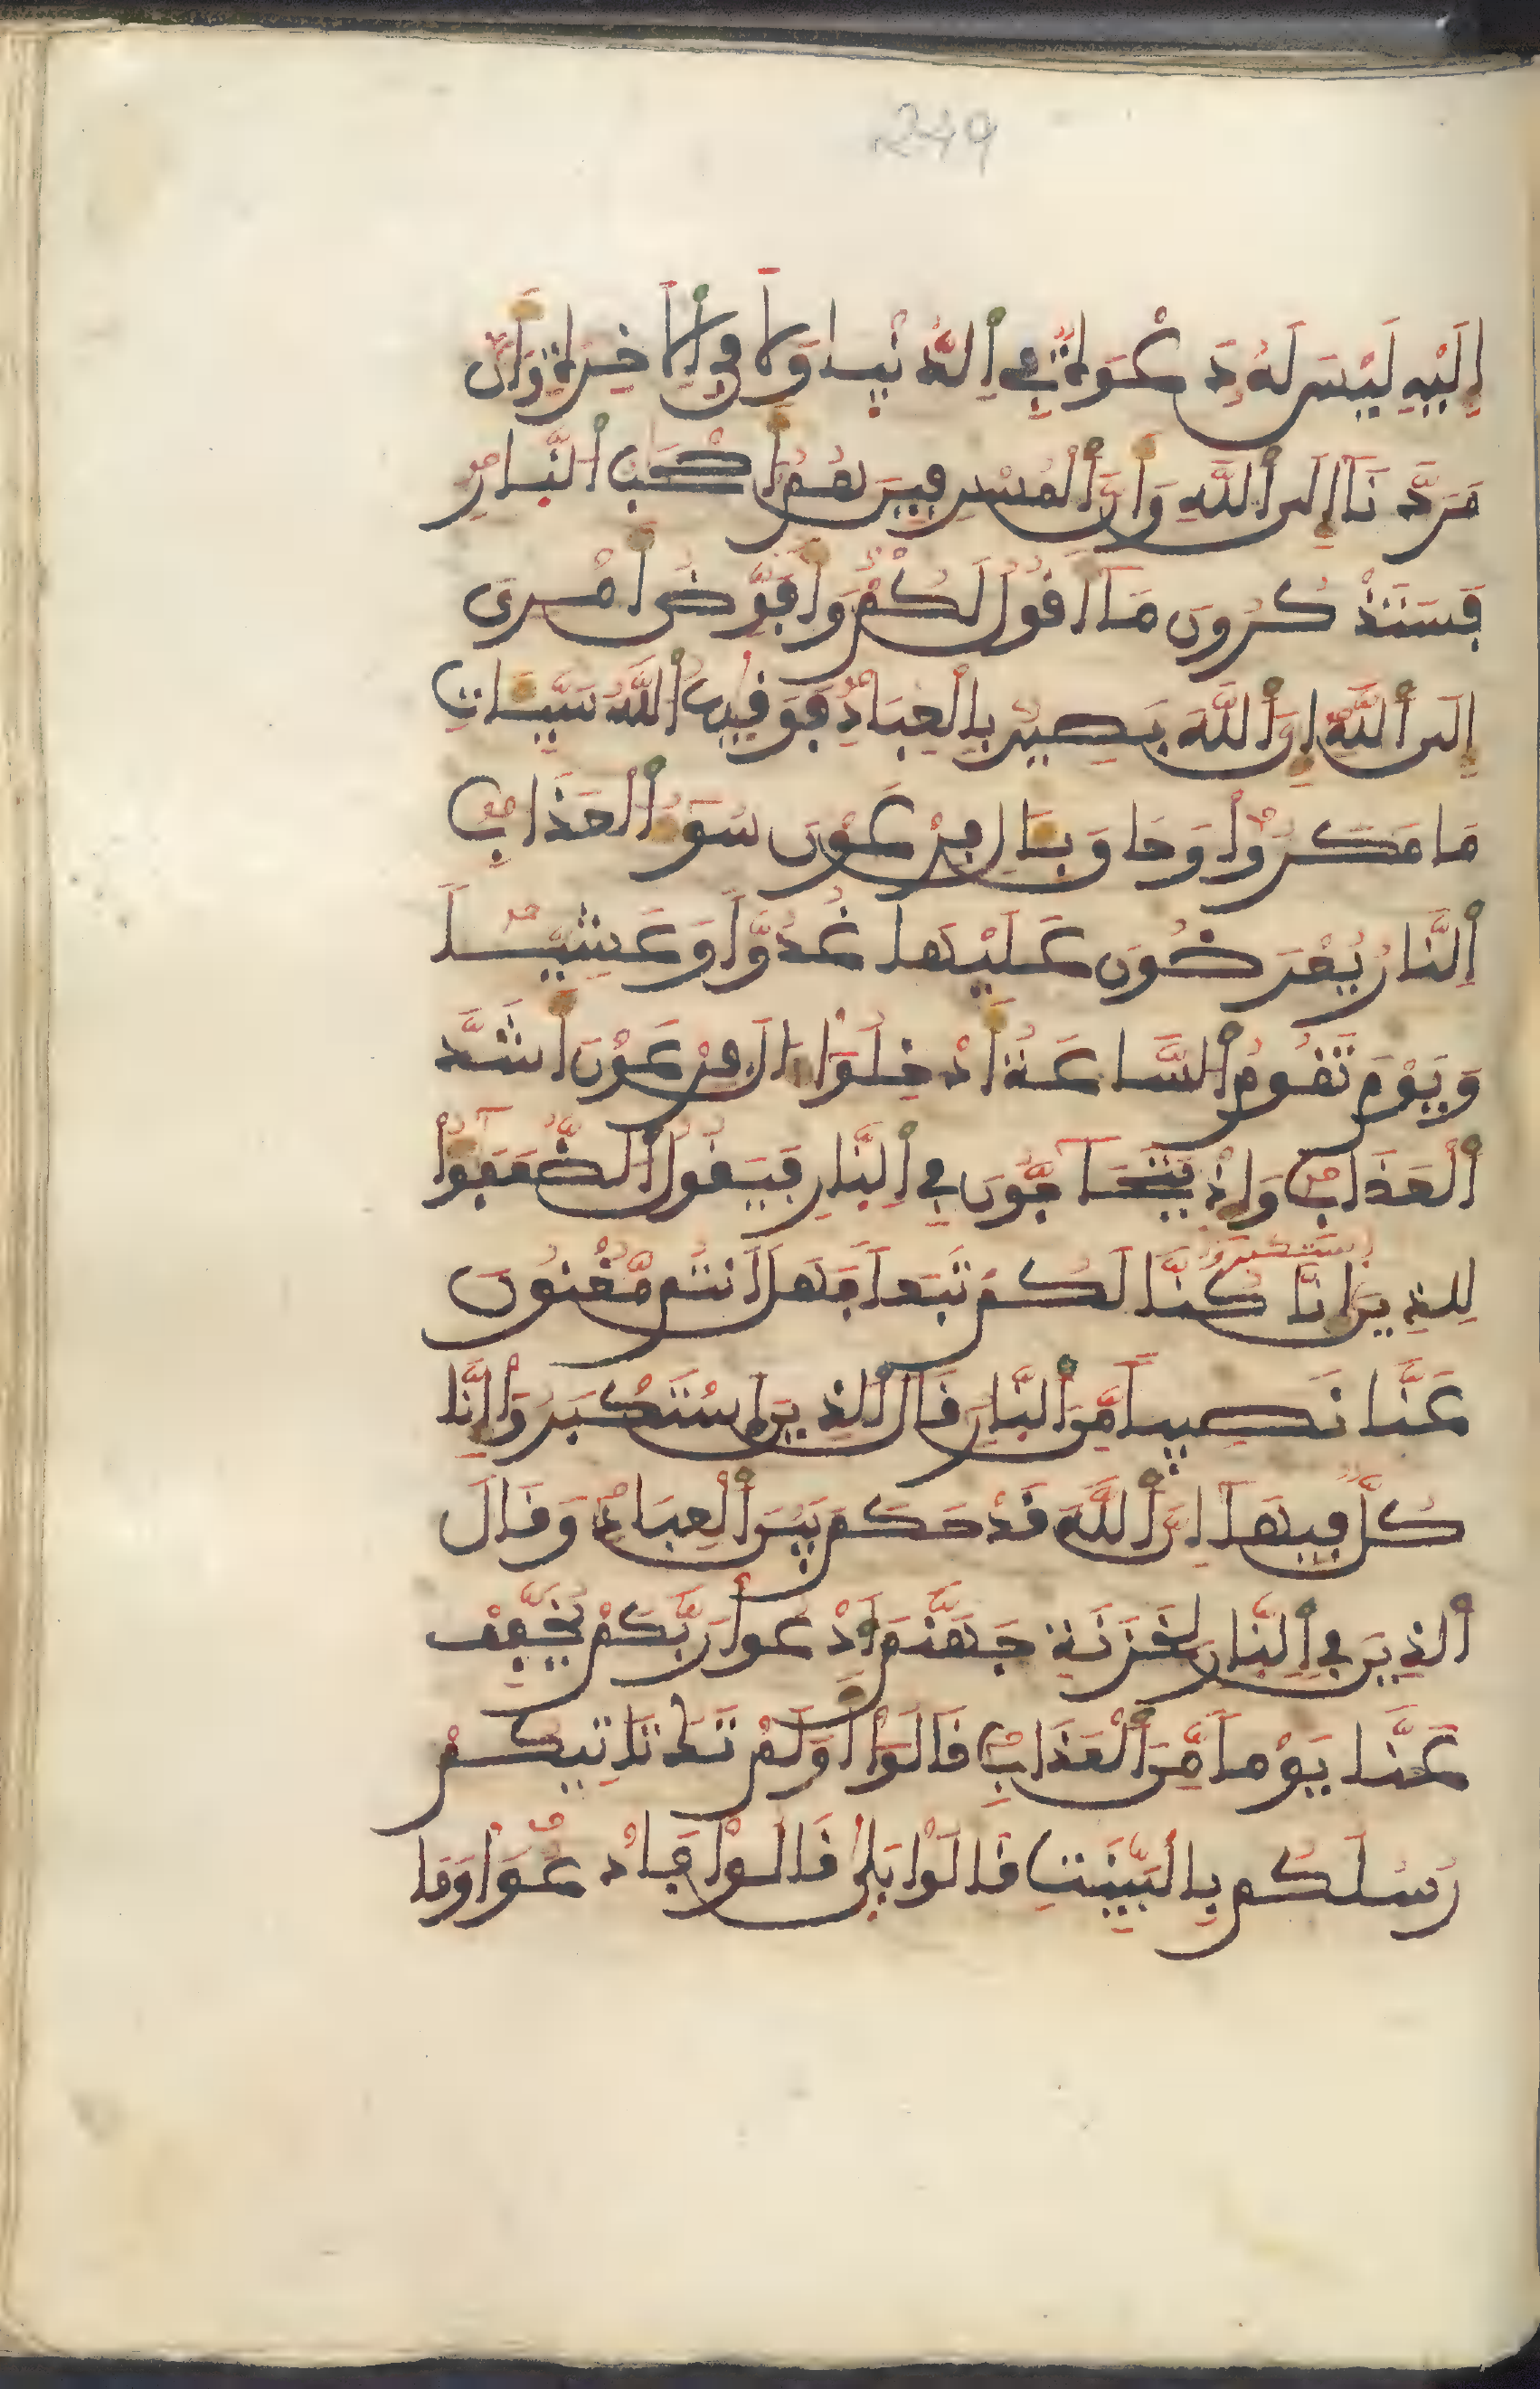 249
إِلَيْهِ لَيْسَ لَهُ دَعْوَةٌ فِي اِلدُّنْيِا وَلَا فِي اِلَاخِرَةِ وَأَنَّ
مَرَدَّنَا إِلَى اَللَّهِ وَأَنَّ اَلْمُسْرِفِينَ هُمُ أَصْحَبُ اُلنّارِ
فَسَتَذْكُرُونَ مَا أَقُولُ لَكُمْ وَأُفَوِّضُ أَمْرِي
إِلَى اَللَّهِ إِنَّ اَللَّهَ بَصِيرٌ بِالْعِبَادِ فَوَقِيهُ اُللَّهُ سَيِّـَٔاتِ
مَا مَكَرُوا وَحَاقَ بِـَٔالِ فِرْعَوْنَ سُوءُ اُلْعَذَابِ
اِلنَّارُ يُعْرَضُونَ عَلَيْهَا غُدُوّاً وَعَشِيّاً
وَيَوْمَ تَقُومُ اُلسَّاعَةُ أَدْخِلُوا ءَالَ فِرْعَوْنَ أَشَدَّ
اَلْعَذَابِ وَإِذْ يَتَحَاجُّونَ فِي اِلنّارِ فَيَقُولُ اُلضُّعَفَؤُا
لِلذِينَ إسْتَكْبَرُوا إِنَّا كُنَّا لَكُمْ تَبَعاً فَهَلَ اَنتُم مُّغْنُونَ
عَنَّا نَصِيباً مِّنَ اَلنّارِ قَالَ اَلذِينَ اَسْتَكْبَرُوا إِنَّا
كُلٌّ فِيهَا إِنَّ اَللَّهَ قَدْ حَكَمَ بَيْنَ اَلْعِبَادِ وَقَالَ
اَلذِينَ فِي اِلنّارِ لِخَزَنَةِ جَهَنَّمَ اَدْعُوا رَبَّكُمْ يُخَفِّفْ
عَنَّا يَوْماً مِّنَ اَلْعَذَابِ قَالُوا أَوَلَمْ تَكُ تَاتِيكُمْ
رُسُلُكُم بِالْبَيِّنَتِ قَالُوا بَلَى قَالُوا فَادْعُوا وَمَا